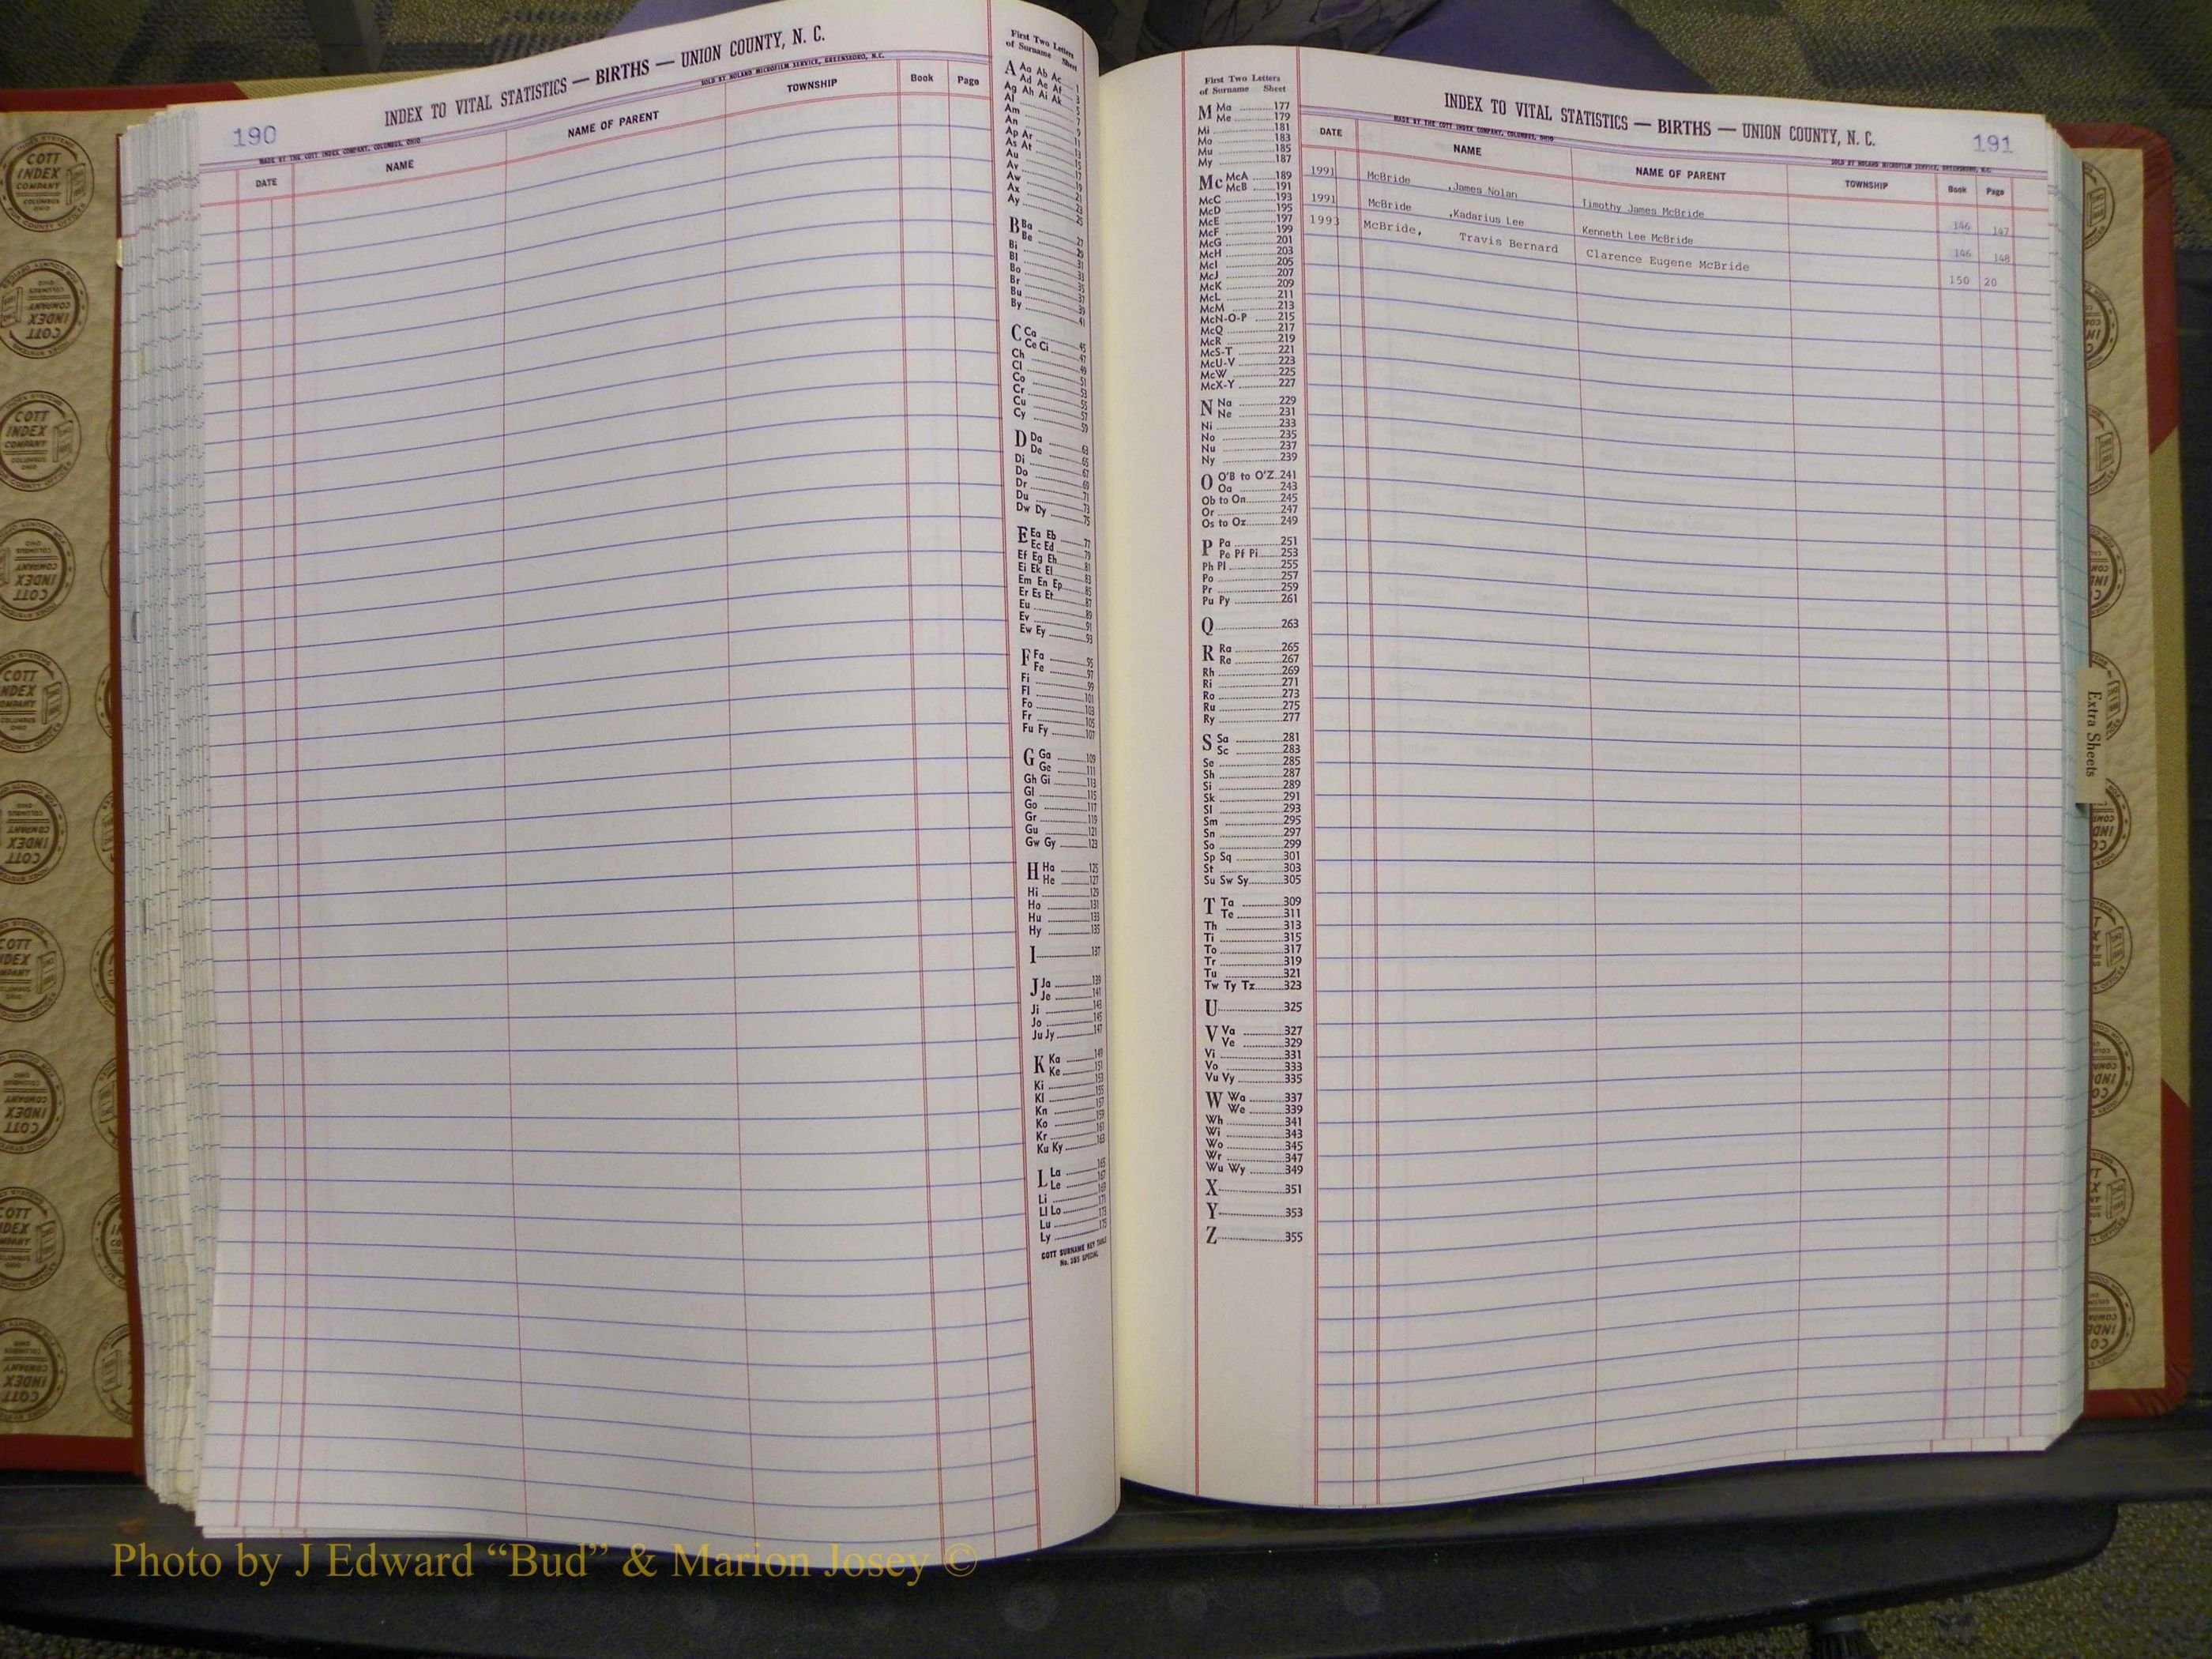 190
INDEX TO VITAL STATISTICS — BIRTHS — UNION COUNTY, N. C.
MADE BY THE COTT INDEX COMPANY, COLUMBUS, OHIO
SOLD BY NOLAND MICROFILM SERVICE, GREENSBORO, N.C.
DATE NAME NAME OF PARENT TOWNSHIP Book Page
First Two Letters
of Surname Sheet
A Aa Ab Ac 1
Ad Ae Af 3
Ag Ah Ai Ak 5
Al 7
Am 9
An 11
Ap Ar 13
As At 15
Au 17
Av 19
Aw 21
Ax 23
Ay 25
B Ba 27
Be 29
Bi 31
Bl 33
Bo 35
Br 37
Bu 39
By 41
C Ca 45
Ce Ci 47
Ch 49
Cl 51
Co 53
Cr 55
Cu 57
Cy 59
D Da 63
De 65
Di 67
Do 69
Dr 71
Du 73
Dw Dy 75
E Ea Eb 77
Ec Ed 79
Ef Eg Eh 81
Ei Ek El 83
Em En Ep 85
Er Es Et 87
Eu 89
Ev 91
Ew Ey 93
F Fa 95
Fe 97
Fi 99
Fl 101
Fo 103
Fr 105
Fu Fy 107
G Ga 109
Ge 111
Gh Gi 113
Gl 115
Go 117
Gr 119
Gu 121
Gw Gy 123
H Ha 125
He 127
Hi 129
Ho 131
Hu 133
Hy 135
I 137
J Ja 139
Je 141
Ji 143
Jo 145
Ju Jy 147
K Ka 149
Ke 151
Ki 153
Kl 155
Kn 157
Ko 159
Kr 161
Ku Ky 163
L La 165
Le 167
Li 171
Ll Lo 173
Lu 175
Ly
COTT SURNAME KEY TABLE
No. 385 SPECIAL
First Two Letters
of Surname Sheet
M Ma 177
Me 179
Mi 181
Mo 183
Mu 185
My 187
Mc McA 189
McB 191
McC 193
McD 195
McE 197
McF 199
McG 201
McH 203
McI 205
McJ 207
McK 209
McL 211
McM 213
McN-O-P 215
McQ 217
McR 219
McS-T 221
McU-V 223
McW 225
McX-Y 227
N Na 229
Ne 231
Ni 233
No 235
Nu 237
Ny 239
O O'B to O'Z 241
Oa 243
Ob to On 245
Or 247
Os to Oz 249
P Pa 251
Pe Pf Pi 253
Ph Pl 255
Po 257
Pr 259
Pu Py 261
Q 263
R Ra 265
Re 267
Rh 269
Ri 271
Ro 273
Ru 275
Ry 277
S Sa 281
Sc 283
Se 285
Sh 287
Si 289
Sk 291
Sl 293
Sm 295
Sn 297
So 299
Sp Sq 301
St 303
Su Sw Sy 305
T Ta 309
Te 311
Th 313
Ti 315
To 317
Tr 319
Tu 321
Tw Ty Tz 323
U 325
V Va 327
Ve 329
Vi 331
Vo 333
Vu Vy 335
W Wa 337
We 339
Wh 341
Wi 343
Wo 345
Wr 347
Wu Wy 349
X 351
Y 353
Z 355
INDEX TO VITAL STATISTICS — BIRTHS — UNION COUNTY, N. C.
191
MADE BY THE COTT INDEX COMPANY, COLUMBUS, OHIO
SOLD BY NOLAND MICROFILM SERVICE, GREENSBORO, N.C.
DATE NAME NAME OF PARENT TOWNSHIP Book Page
1991 McBride ,James Nolan Timothy James McBride 146 147
1991 McBride ,Kadarius Lee Kenneth Lee McBride 146 148
1993 McBride, Travis Bernard Clarence Eugene McBride 150 20
Extra Sheets
COTT INDEX COMPANY
COLUMBUS OHIO
Photo by J Edward “Bud” & Marion Josey ©